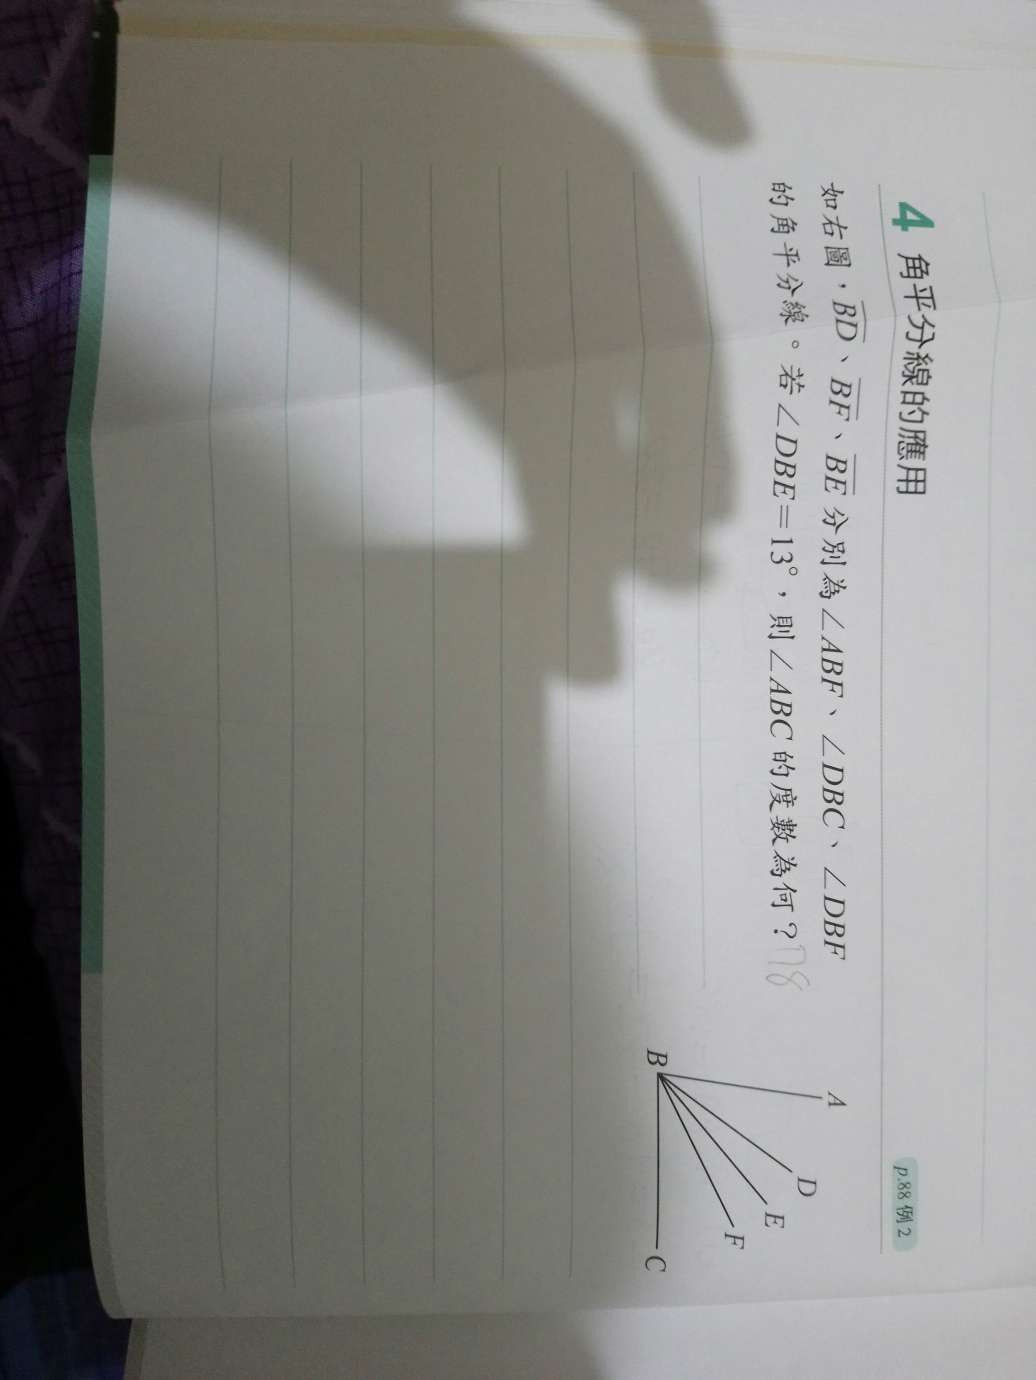 4 角平分線的應用
p.88 例 2
如右圖，BD、BF、BE 分別為∠ABF、∠DBC、∠DBF
的角平分線。若∠DBE=13°，則∠ABC 的度數為何？78
A
D
E
F
B
C